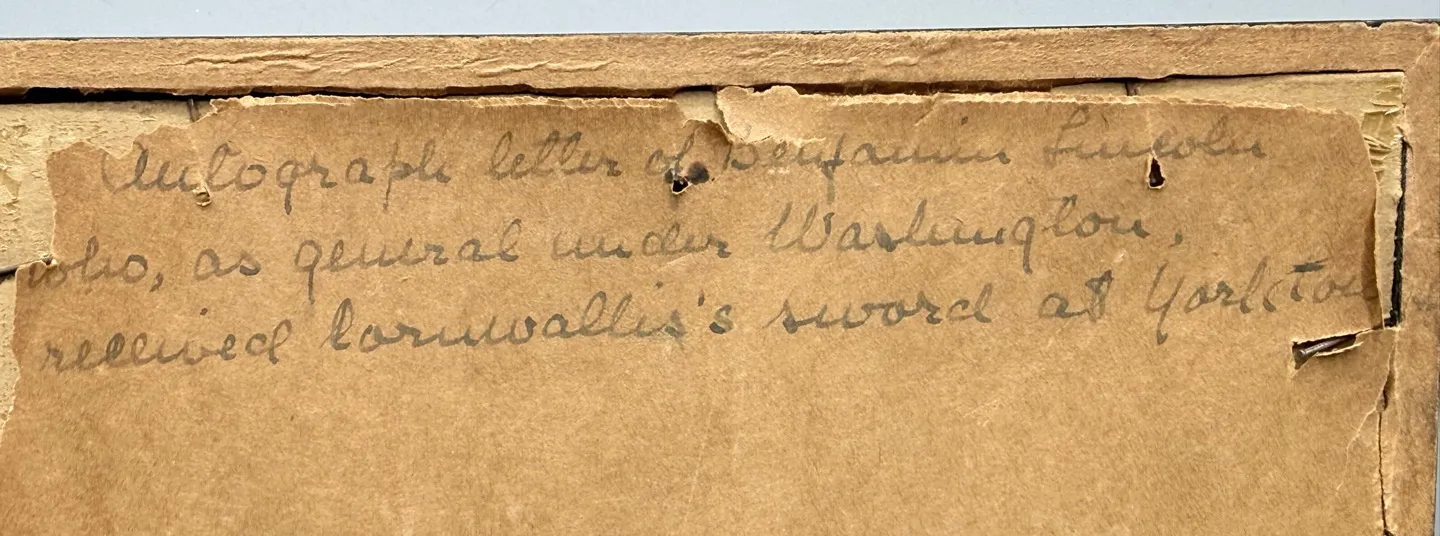 Autograph letter of Benjamin Lincoln
who, as general under Washington,
received Cornwallis's sword at Yorktown